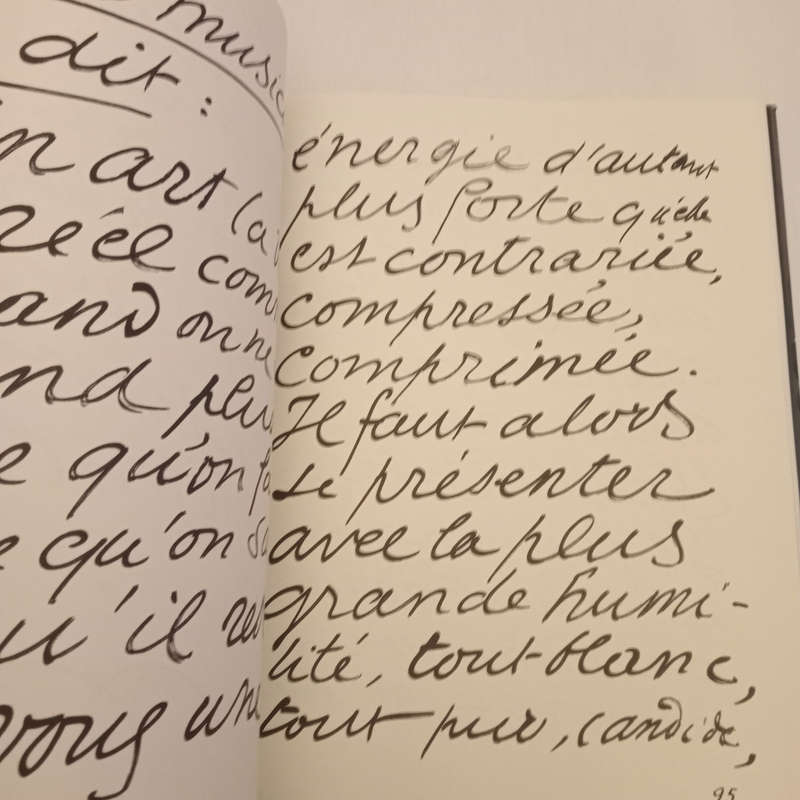 music
dit :
n art la
réel com
and on ne
nd plu
e qu'on fa
e qu'on sa
u'il res
vous une
énergie d'autant
plus forte qu'elle
est contrariée,
compressée,
comprimée.
Il faut alors
se présenter
avec la plus
grande humi-
lité, tout blanc,
tout pur, candide,
95